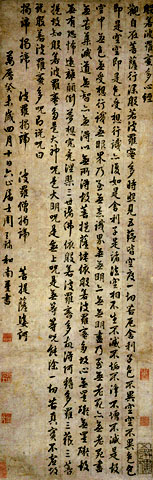 般若波羅蜜多心經
觀自在菩薩行深般若波羅蜜多時照見五蘊皆空度一切苦厄舍利子色不異空空不異色色
即是空空即是色受想行識亦復如是舍利子是諸法空相不生不滅不垢不淨不增不減是故
空中無色無受想行識無眼耳鼻舌身意無色聲香味觸法無眼界乃至無意識界無無明亦無無明盡乃至無老死亦無老死盡
無苦集滅道無智亦無得以無所得故菩提薩埵依般若波羅蜜多故心無罣礙無罣礙故
無有恐怖遠離顛倒夢想究竟涅槃三世諸佛依般若波羅蜜多故得阿耨多羅三藐三菩
提故知般若波羅蜜多是大神咒是大明咒是無上咒是無等等咒能除一切苦真實不虛故
說般若波羅蜜多咒即說咒曰
揭諦揭諦 波羅揭諦 波羅僧揭諦 菩提薩婆訶
萬曆 未歲四月十日六止居士周天 和南書